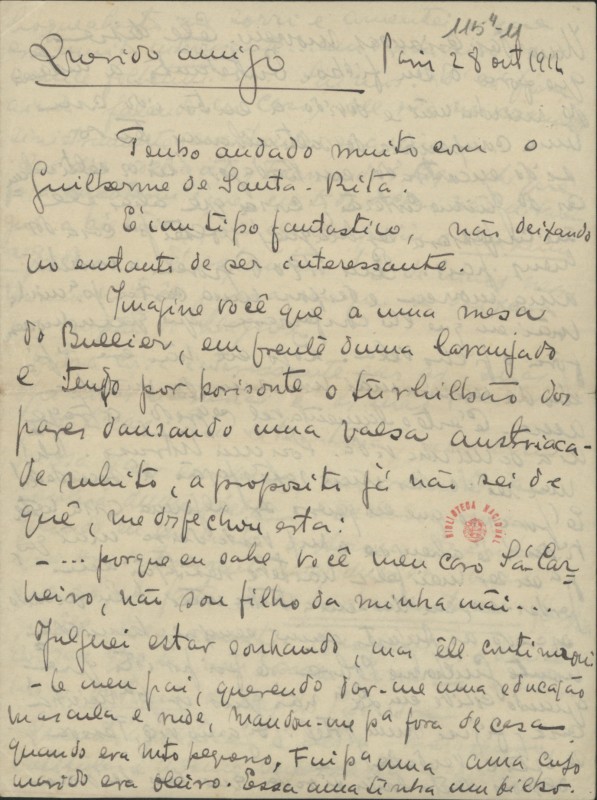 115⁴-11
Querido amigo Paris 28 out 1912
Tenho andado muito com o
Guilherme de Santa-Rita.
É um tipo fantastico, não deixando
no entanto de ser interessante.
Imagine você que a uma mesa
do Bullier, em frente duma laranjada
e tendo por horisonte o turbilhão dos
pares dansando uma valsa austriaca-
de subito, a proposito já não sei de
quê, me desfechou esta:
BIBLIOTECA NACIONAL
-... porque eu sabe você meu caro Sá-Car=
neiro, não sou filho da minha mãi...
Julguei estar sonhando, mas êle continuou
- O meu pai, querendo dar-me uma educação
mascula e rude, mandou-me pª fora de casa
quando era mto pequeno, Fui pª uma ama cujo
marido era oleiro. Essa ama tinha um filho.